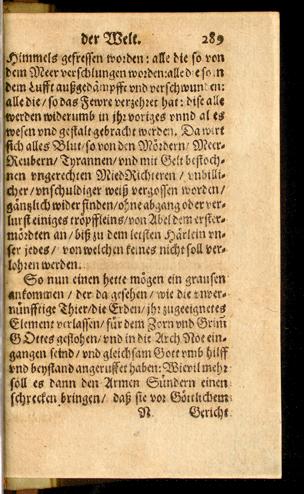 der Welt. 289
Himmels gefressen worden: alle die so von
dem Meer verschlungen worden: alle die so in
dem Lufft außgedämpfft vnd verschwunden:
alle die / so das Fewre verzehret hat: dise alle
werden widerumb in jhr voriges vnnd altes
wesen vnd gestalt gebracht werden. Da wirt
sich alles Blut / so von den Mördern / Meer-
Reubern / Tyrannen / vnd mit Gelt bestoch-
nen vngerechten MiedRichteren / vnbilli-
cher / vnschuldiger weiß vergossen worden /
gäntzlich wider finden / ohne abgang oder ver-
lurst einiges tröpffleins / von Abel dem erster-
mördten an / biß zu dem letsten Härlein vn-
ser jedes / von welchen keines nicht soll ver-
lohren werden.
So nun einen hette mögen ein grausen
ankommen / der da gesehen / wie die vnver-
nünfftige Thier / die Erden / jhr zugeeignetes
Element verlassen / für dem Zorn vnd Grim̃
GOttes geflohen / vnd in die Arch Noe ein-
gangen seind / vnd gleichsam Gott vmb hilff
vnd beystand angeruffet haben: Wievil mehr
soll es dann den Armen Sündern einen
schrecken bringen / daß sie vor Göttlichem
N. Gericht